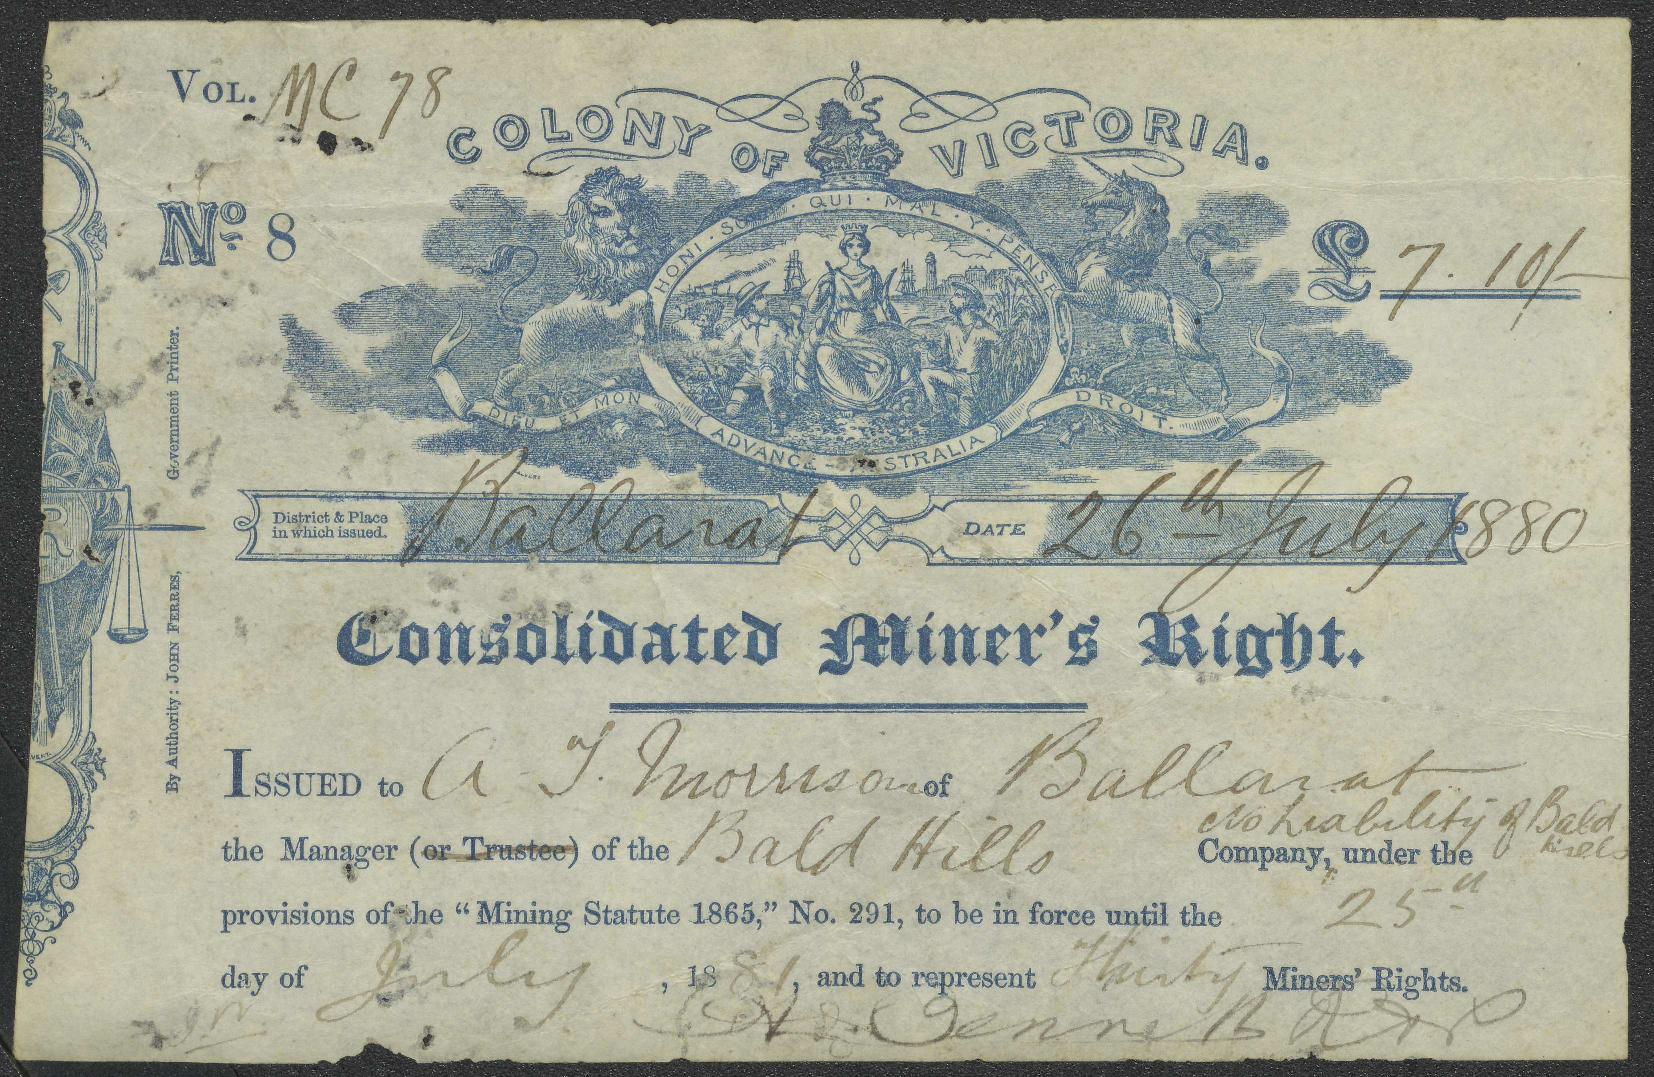 Vol. MC 78
COLONY OF VICTORIA.
No. 8
£ 7. 10/-
HONI · SOIT · QUI · MAL · Y · PENSE
DIEU ET MON DROIT.
ADVANCE AUSTRALIA
By Authority: JOHN FERRES, Government Printer.
District & Place
in which issued.
Ballarat
DATE 26th July 1880
Consolidated Miner's Right.
ISSUED to A. T. Morrison of Ballarat
No Liability of Bald Hills
the Manager (or Trustee) of the Bald Hills Company, under the
provisions of the "Mining Statute 1865," No. 291, to be in force until the 25th
day of July, 1881, and to represent Thirty Miners' Rights.